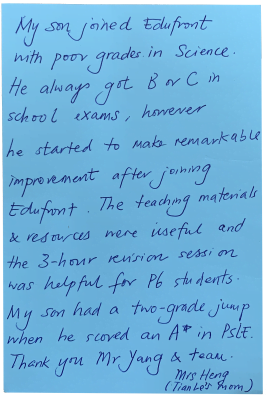 My son joined Edufront
with poor grades in Science.
He always got B or C in
school exams, however
he started to make remarkable
improvement after joining
Edufront. The teaching materials
& resources were useful and
the 3-hour revision session
was helpful for P6 students.
My son had a two-grade jump
when he scored an A* in PSLE.
Thank you Mr Yang & team.
Mrs Heng
(Tian Le's mom)